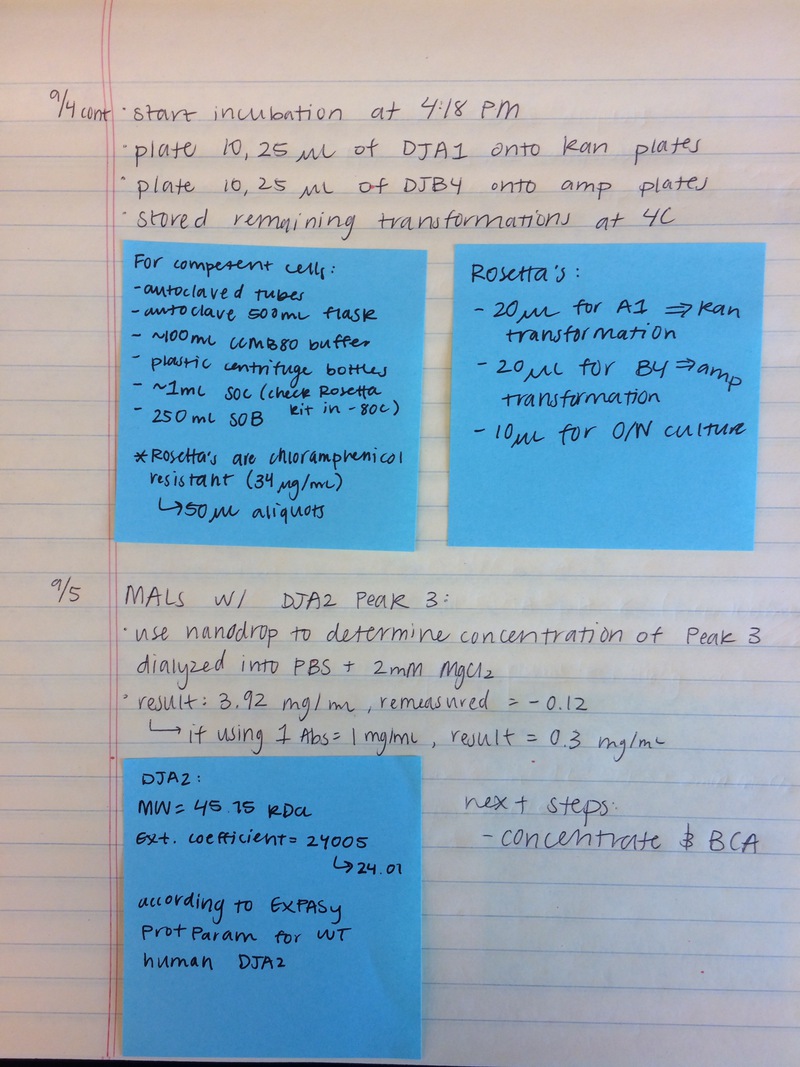 9/4 cont · start incubation at 4:18 PM
· plate 10, 25 µL of DJA1 onto kan plates
· plate 10, 25 µL of DJB4 onto amp plates
· stored remaining transformations at 4C
For competent cells:
- autoclaved tubes
- autoclave 500mL flask
- ~100mL CCMB80 buffer
- plastic centrifuge bottles
- ~1mL SOC (check Rosetta
kit in -80C)
- 250 mL SOB
* Rosetta's are chloramphenicol
resistant (34 µg/mL)
↳ 50 µL aliquots
Rosetta's:
- 20 µL for A1 ⇒ kan
transformation
- 20 µL for B4 ⇒ amp
transformation
- 10 µL for O/N culture
9/5 MALS w/ DJA2 Peak 3:
· use nanodrop to determine concentration of Peak 3
dialyzed into PBS + 2mM MgCl2
· result: 3.92 mg/mL, remeasured = -0.12
↳ if using 1 Abs = 1 mg/mL, result = 0.3 mg/mL
DJA2:
MW = 45.75 kDa
Ext. coefficient = 24005
↳ 24.01
according to EXPASy
ProtParam for WT
human DJA2
next steps:
- concentrate & BCA